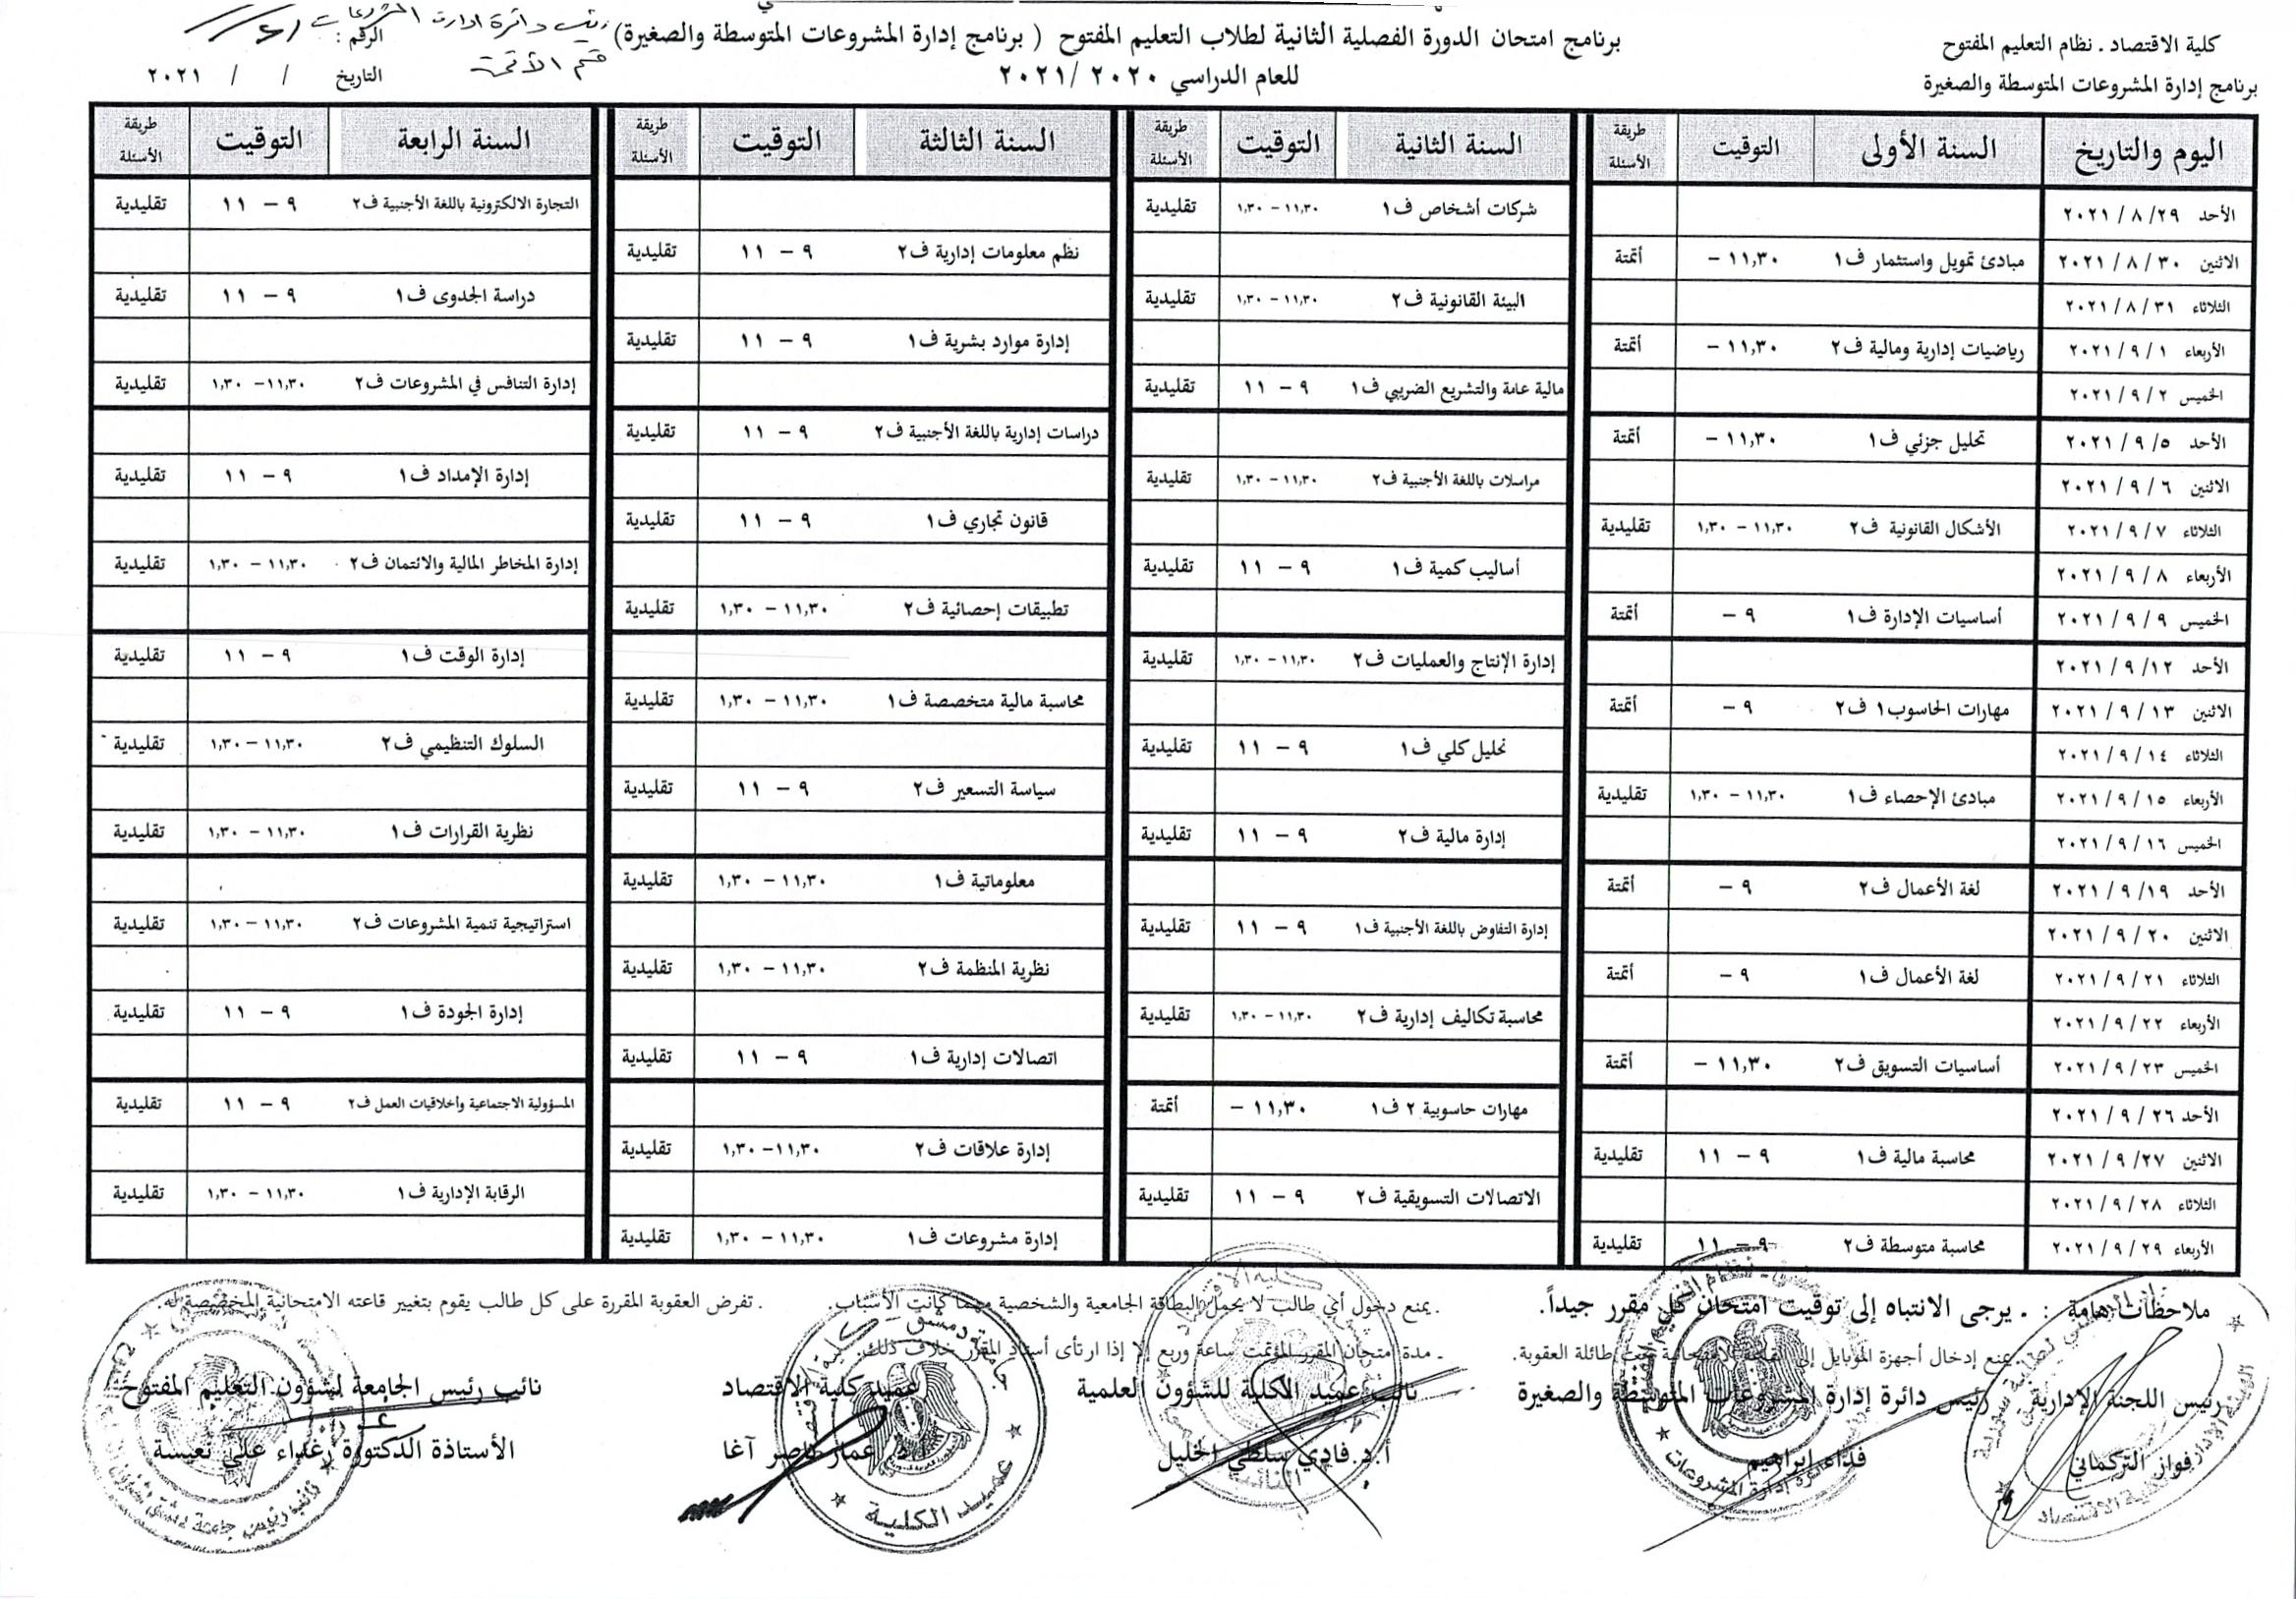 كلية الاقتصاد . نظام التعليم المفتوح
برنامج إدارة المشروعات المتوسطة والصغيرة
برنامج امتحان الدورة الفصلية الثانية لطلاب التعليم المفتوح ( برنامج إدارة المشروعات المتوسطة والصغيرة)
للعام الدراسي ٢٠٢٠ /٢٠٢١
الرقم :
التاريخ / / ٢٠٢١
اليوم والتاريخ السنة الأولى التوقيت طريقة الأسئلة السنة الثانية التوقيت طريقة الأسئلة السنة الثالثة التوقيت طريقة الأسئلة السنة الرابعة التوقيت طريقة الأسئلة
الأحد ٢٩/ ٨ / ٢٠٢١ شركات أشخاص ف١ ١١,٣٠ – ١,٣٠ تقليدية التجارة الالكترونية باللغة الأجنبية ف٢ ٩ – ١١ تقليدية
الاثنين ٣٠ / ٨ / ٢٠٢١ مبادئ تمويل واستثمار ف١ ١١,٣٠ – أتمتة نظم معلومات إدارية ف٢ ٩ – ١١ تقليدية
الثلاثاء ٣١ / ٨ / ٢٠٢١ البيئة القانونية ف٢ ١١,٣٠ – ١,٣٠ تقليدية دراسة الجدوى ف١ ٩ – ١١ تقليدية
الأربعاء ١ / ٩ / ٢٠٢١ رياضيات إدارية ومالية ف٢ ١١,٣٠ – أتمتة إدارة موارد بشرية ف١ ٩ – ١١ تقليدية
الخميس ٢ / ٩ / ٢٠٢١ مالية عامة والتشريع الضريبي ف١ ٩ – ١١ تقليدية إدارة التنافس في المشروعات ف٢ ١١,٣٠– ١,٣٠ تقليدية
الأحد ٥/ ٩ / ٢٠٢١ تحليل جزئي ف١ ١١,٣٠ – أتمتة دراسات إدارية باللغة الأجنبية ف٢ ٩ – ١١ تقليدية
الاثنين ٦ / ٩ / ٢٠٢١ مراسلات باللغة الأجنبية ف٢ ١١,٣٠ – ١,٣٠ تقليدية إدارة الإمداد ف١ ٩ – ١١ تقليدية
الثلاثاء ٧ / ٩ / ٢٠٢١ الأشكال القانونية ف٢ ١١,٣٠ – ١,٣٠ تقليدية قانون تجاري ف١ ٩ – ١١ تقليدية
الأربعاء ٨ / ٩ / ٢٠٢١ أساليب كمية ف١ ٩ – ١١ تقليدية إدارة المخاطر المالية والائتمان ف٢ ١١,٣٠ – ١,٣٠ تقليدية
الخميس ٩ / ٩ / ٢٠٢١ أساسيات الإدارة ف١ ٩ – أتمتة تطبيقات إحصائية ف٢ ١١,٣٠ – ١,٣٠ تقليدية
الأحد ١٢/ ٩ / ٢٠٢١ إدارة الإنتاج والعمليات ف٢ ١١,٣٠ – ١,٣٠ تقليدية إدارة الوقت ف١ ٩ – ١١ تقليدية
الاثنين ١٣ / ٩ / ٢٠٢١ مهارات الحاسوب١ ف٢ ٩ – أتمتة محاسبة مالية متخصصة ف١ ١١,٣٠ – ١,٣٠ تقليدية
الثلاثاء ١٤ / ٩ / ٢٠٢١ تحليل كلي ف١ ٩ – ١١ تقليدية السلوك التنظيمي ف٢ ١١,٣٠ – ١,٣٠ تقليدية
الأربعاء ١٥ / ٩ / ٢٠٢١ مبادئ الإحصاء ف١ ١١,٣٠ – ١,٣٠ تقليدية سياسة التسعير ف٢ ٩ – ١١ تقليدية
الخميس ١٦ / ٩ / ٢٠٢١ إدارة مالية ف٢ ٩ – ١١ تقليدية نظرية القرارات ف١ ١١,٣٠ – ١,٣٠ تقليدية
الأحد ١٩/ ٩ / ٢٠٢١ لغة الأعمال ف٢ ٩ – أتمتة معلوماتية ف١ ١١,٣٠ – ١,٣٠ تقليدية
الاثنين ٢٠ / ٩ / ٢٠٢١ إدارة التفاوض باللغة الأجنبية ف١ ٩ – ١١ تقليدية استراتيجية تنمية المشروعات ف٢ ١١,٣٠ – ١,٣٠ تقليدية
الثلاثاء ٢١ / ٩ / ٢٠٢١ لغة الأعمال ف١ ٩ – أتمتة نظرية المنظمة ف٢ ١١,٣٠ – ١,٣٠ تقليدية
الأربعاء ٢٢ / ٩ / ٢٠٢١ محاسبة تكاليف إدارية ف٢ ١١,٣٠ – ١,٣٠ تقليدية إدارة الجودة ف١ ٩ – ١١ تقليدية
الخميس ٢٣ / ٩ / ٢٠٢١ أساسيات التسويق ف٢ ١١,٣٠ – أتمتة اتصالات إدارية ف١ ٩ – ١١ تقليدية
الأحد ٢٦ / ٩ / ٢٠٢١ مهارات حاسوبية ٢ ف١ ١١,٣٠ – أتمتة المسؤولية الاجتماعية وأخلاقيات العمل ف٢ ٩ – ١١ تقليدية
الاثنين ٢٧/ ٩ / ٢٠٢١ محاسبة مالية ف١ ٩ – ١١ تقليدية إدارة علاقات ف٢ ١١,٣٠– ١,٣٠ تقليدية
الثلاثاء ٢٨ / ٩ / ٢٠٢١ الاتصالات التسويقية ف٢ ٩ – ١١ تقليدية الرقابة الإدارية ف١ ١١,٣٠ – ١,٣٠ تقليدية
الأربعاء ٢٩ / ٩ / ٢٠٢١ محاسبة متوسطة ف٢ ٩ – ١١ تقليدية إدارة مشروعات ف١ ١١,٣٠ – ١,٣٠ تقليدية
ملاحظات هامة : . يرجى الانتباه إلى توقيت امتحان كل مقرر جيداً. . يمنع دخول أي طالب لا يحمل البطاقة الجامعية والشخصية مهما كانت الأسباب. . تفرض العقوبة المقررة على كل طالب يقوم بتغيير قاعته الامتحانية المخصصة له.
. يمنع إدخال أجهزة الموبايل إلى القاعة الامتحانية تحت طائلة العقوبة. ـ مدة امتحان المقرر المؤتمت ساعة وربع إلا إذا ارتأى أستاذ المقرر خلاف ذلك.
رئيس اللجنة الإدارية رئيس دائرة إدارة المشروعات المتوسطة والصغيرة نائب عميد الكلية للشؤون العلمية عميد كلية الاقتصاد نائب رئيس الجامعة لشؤون التعليم المفتوح
فواز التركماني فداء ابراهيم أ.د.فادي سلطي الخليل أ.د عمار ناصر آغا الأستاذة الدكتورة رغداء علي نعيسة